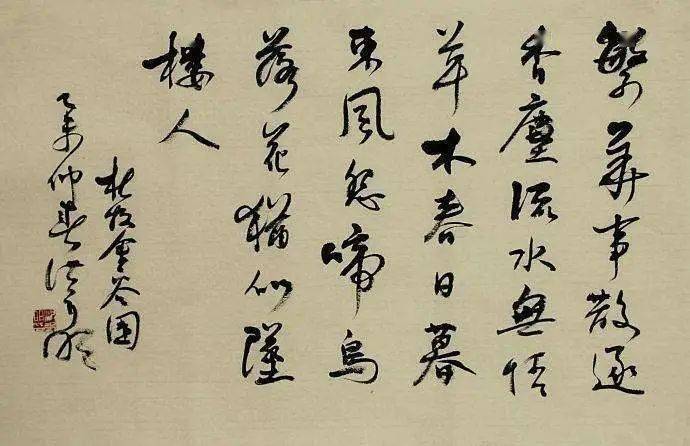 繁華事散逐
香塵流水無情
草木春日暮
東風怨啼鳥
落花猶似墜
樓人
杜牧金谷園
乙未仲春